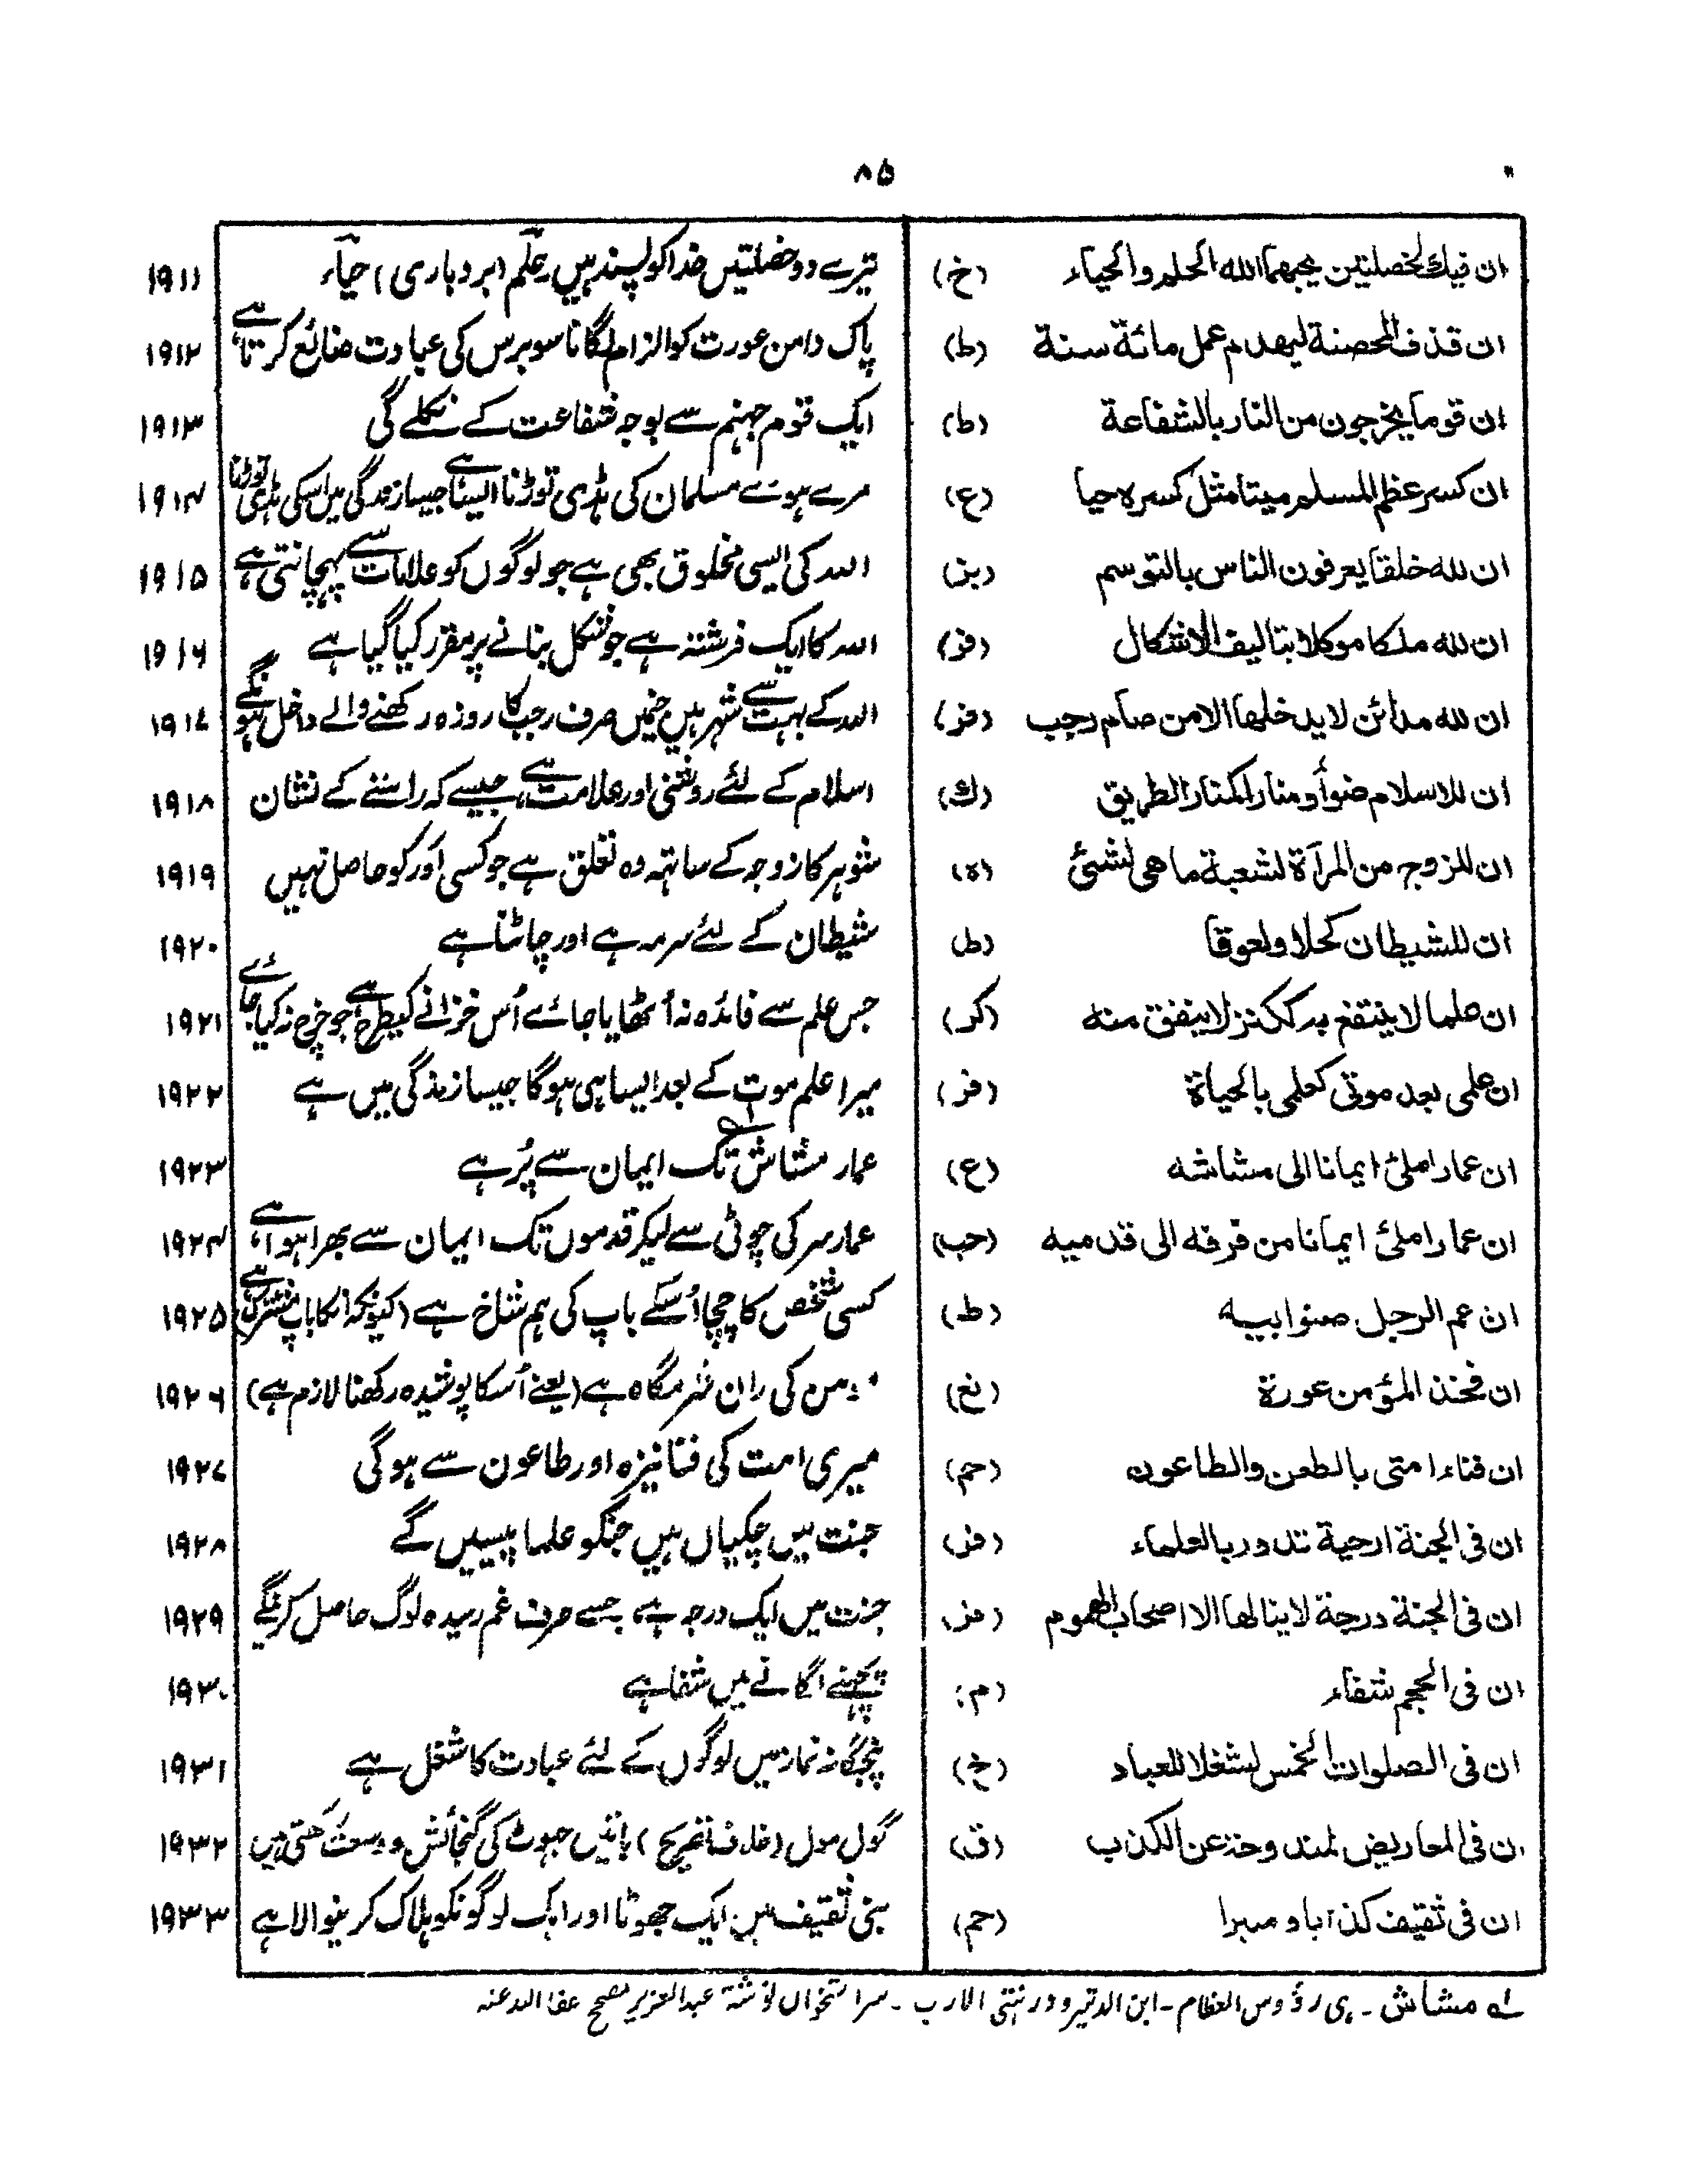 ۸۵
ان فيك لخصلتين يحبهما الله الحلم والحياء (خ) تیرے دو خصلتیں خدا کو پسند ہیں، حلم (بردباری) حیاء ۱۹۱۱
ان قذف المحصنة ليهدم عمل مائة سنة (ط) پاک دامن عورت کو الزام لگانا سو برس کی عبادت ضائع کرتا ہے ۱۹۱۲
ان قوما يخرجون من النار بالشفاعة (ط) ایک قوم جہنم سے بوجہ شفاعت کے نکلے گی ۱۹۱۳
ان كسر عظم المسلم ميتا مثل كسره حيا (ع) مرے ہوئے مسلمان کی ہڈی توڑنا ایسا ہے جیسا زندگی میں اسکی ہڈی توڑنا ۱۹۱۴
ان لله خلقا يعرفون الناس بالتوسم (بز) اللہ کی ایسی مخلوق بھی ہے جو لوگوں کو علامات سے پہچانتی ہے ۱۹۱۵
ان لله ملكا موكلا بتاليف الاشكال (فز) اللہ کا ایک فرشتہ ہے جو شکل بنانے پر مقرر کیا گیا ہے ۱۹۱۶
ان لله مدائن لا يدخلها الا من صام رجب (فز) اللہ کے بہت سے شہر ہیں جنمیں صرف رجب کا روزہ رکھنے والے داخل ہونگے ۱۹۱۷
ان للاسلام ضوأ و منارا كمنار الطريق (ك) اسلام کے لئے روشنی اور علامت ہے، جیسے کہ راستے کے نشان ۱۹۱۸
ان للزوج من المرآة لشعبة ما هى لشئ (ه) شوہر کا زوجہ کے ساتھ وہ تعلق ہے جو کسی اور کو حاصل نہیں ۱۹۱۹
ان للشيطان كحلا ولعوقا (ط) شیطان کے لئے سرمہ ہے اور چاٹنا ہے ۱۹۲۰
ان علما لا ينتفع به ككنز لا ينفق منه (كر) جس علم سے فائدہ نہ اُٹھایا جائے اُس خزانے کیطرح ہے جو خرچ نہ کیا جائے ۱۹۲۱
ان علمى بعد موتى كعلمى بالحياة (فز) میرا علم موت کے بعد ایسا ہی ہوگا جیسا زندگی میں ہے ۱۹۲۲
ان عمارا ملئ ايمانا الى مشاشه (ع) عمار مشاش تک ایمان سے پُر ہے ۱۹۲۳
ان عمارا ملئ ايمانا من قرفه الى قدميه (حب) عمار سر کی چوٹی سے لیکر قدموں تک ایمان سے بھرا ہوا ہے ۱۹۲۴
ان عم الرجل صنوابيه (ط) کسی شخص کا چچا اُسکے باپ کی ہم شاخ ہے (کیونکہ انکا باپ مشترک ہے) ۱۹۲۵
ان فخذ المؤمن عورة (نع) مومن کی ران شرمگاہ ہے (یعنے اُسکا پوشیدہ رکھنا لازم ہے) ۱۹۲۶
ان فناء امتى بالطعن والطاعون (حم) میری امت کی فنا نیزہ اور طاعون سے ہوگی ۱۹۲۷
ان فى الجنة ارحية تدور بالعلماء (فز) جنت میں چکیاں ہیں جنکو علما پیسیں گے ۱۹۲۸
ان فى الجنة درجة لا ينالها الا اصحاب الهموم (فز) جنت میں ایک درجہ ہے، جسے صرف غم رسیدہ لوگ حاصل کرینگے ۱۹۲۹
ان فى الحجم شفاء (م) پچھنے لگانے میں شفا ہے ۱۹۳۰
ان فى الصلوات الخمس لشغلا للعباد (خ) پنجگانہ نماز میں لوگوں کے لئے عبادت کا شغل ہے ۱۹۳۱
ان فى المعاريض لمندوحة عن الكذب (ق) گول مول (خلاف تصریح) باتیں جھوٹ کی گنجائش و وسعت رکھتی ہیں ۱۹۳۲
ان فى ثقيف كذابا و مبيرا (حم) بنی ثقیف میں ایک جھوٹا اور ایک لوگونکو ہلاک کرنیوالا ہے ۱۹۳۳
لہ مشاش ـ ہی رؤوس العظام ـ ابن الاثیر و در منتہی الارب ـ سر استخواں نوشتہ عبدالعزیز مصحح عفا اللہ عنہ